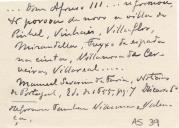 ... Dom Afonso III ... reformou,
e povoou de novo as villas de
Pinhel, Vinhais, Villaflor,
Mirandella, Freyxo de espada
na cinta, Villanova da Cer-
veira, Villareal ...
Manuel Severim de Faria, Notícias
de Portugal, Ed. de 1655, p. 7
Reformou tambem Vianna, e Valen-
ça.
AS 39